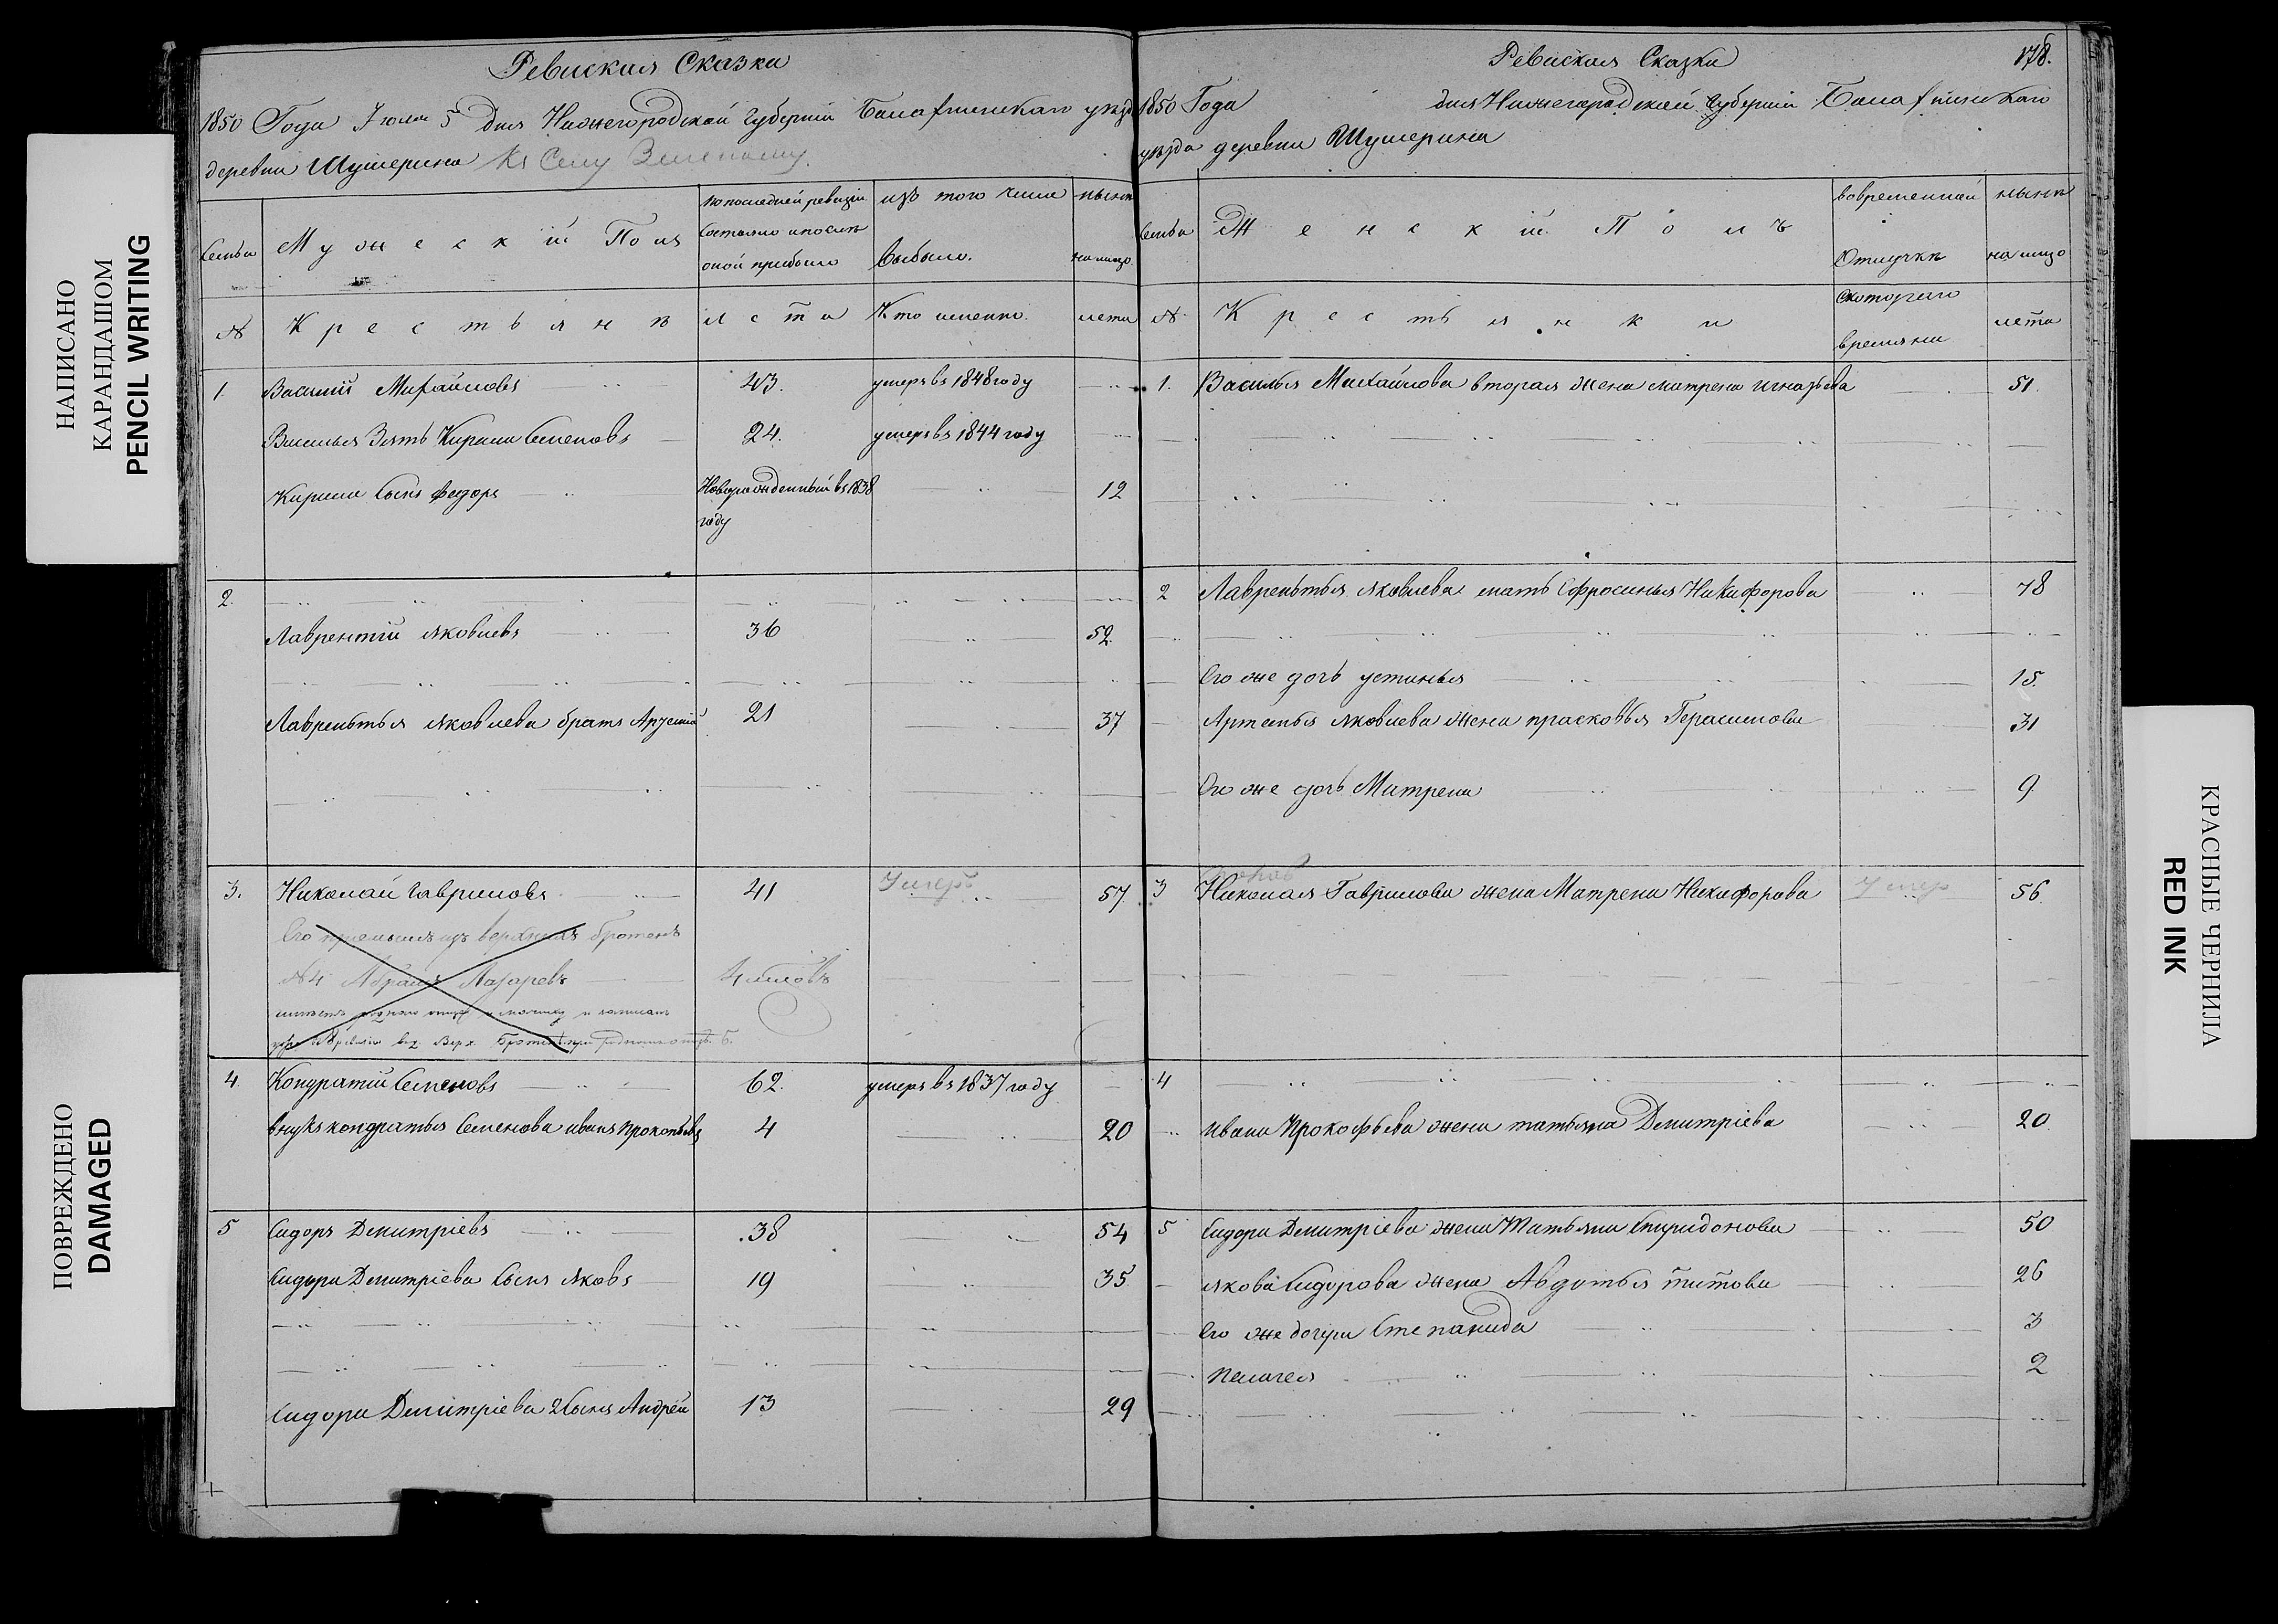 НАПИСАНО
КАРАНДАШОМ
PENCIL WRITING
ПОВРЕЖДЕНО
DAMAGED
Ревиская Сказка
1850 Года Июля 5 дня Нижегородской губернiи Балахнинскаго уезд
деревни Шушерина Къ Селу
Семьи Мужескiй Полъ
по последней ревизiи состояло и после оной прибыло
изъ того числа выбыло.
ныне на лицо.
№ Крестьяне лета Кто именно. лета
1. Василiй Михайловъ 43. умеръ въ 1848 году
Василья Зять Кирила Семеновъ 24. умеръ въ 1844 году
Кирила Сынъ Федоръ Новорожденный въ 1838 году 12
2.
Лаврентiй яковлевъ 36 52.
Лаврентья яковлева братъ 21 37
3. Николай Гавриловъ 41 Умеръ 57
Его приемышъ изъ верхнихъ
№4 Лазаревъ
4. Кондратiй Семеновъ 62. умеръ въ 1837 году
внукъ кондратья Семенова иванъ прокопьевъ 4 20
5 Сидоръ Димитрiевъ 38 54
Сидора Димитрiева Сынъ яковъ 19 35
Сидора Димитрiева 2 Сынъ Андрей 13 29
Ревиская Сказка 178.
1850 Года дня Нижегородской губернiи Балахнинскаго
уезда деревни Шушерина
Семьи Женскiй Полъ
во временной Отлучке
ныне на лицо
№ Крестьянки
Скотораго времяни
лета
1. Василья Михайлова вторая жена матрена игнатьева 51.
2 Лаврентья яковлева мать Ефросинья Никифорова 78
Его же дочь устинья 15.
Артемья яковлева жена прасковья Герасимова 31
Его же дочь Матрена 9
3 Николая Гаврилова жена Матрена Никифорова 56.
4
ивана Прокофьева жена татьяна Димитрiева 20.
5 Сидора Димитрiева жена Татьяна Спиридонова 50
якова Сидорова жена Авдотья титова 26
Его же дочери Степанида 3
пелагея 2
КРАСНЫЕ ЧЕРНИЛА
RED INK